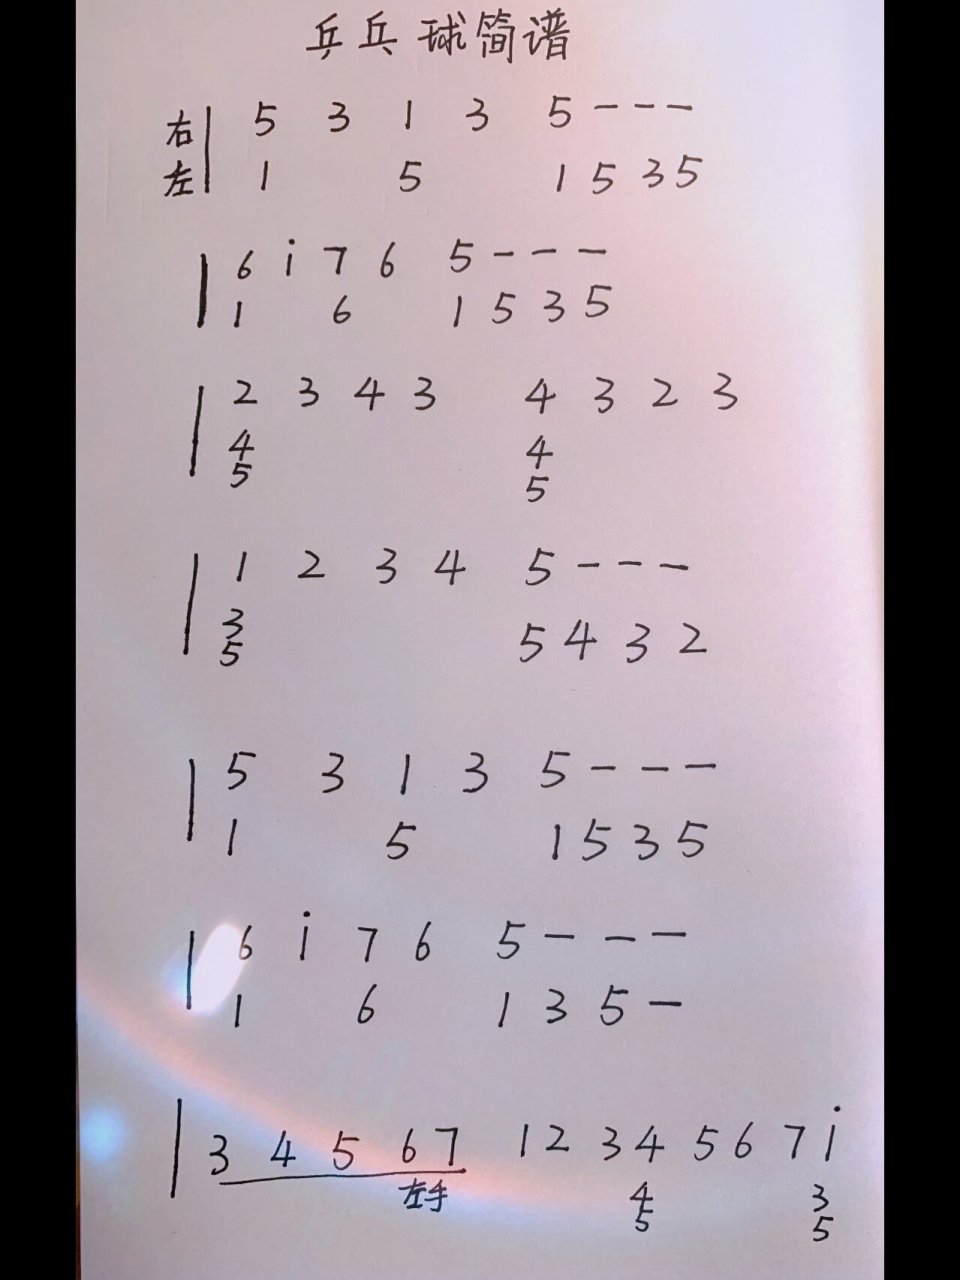 乒乓球简谱
右 5 3 1 3 5 - - -
左 1 5 1 5 3 5
6 i 7 6 5 - - -
1 6 1 5 3 5
2 3 4 3 4 3 2 3
4 4
5 5
1 2 3 4 5 - - -
3 5 4 3 2
5
5 3 1 3 5 - - -
1 5 1 5 3 5
6 i 7 6 5 - - -
1 6 1 3 5 -
3 4 5 6 7 1 2 3 4 5 6 7 i
左手 4 3
5 5